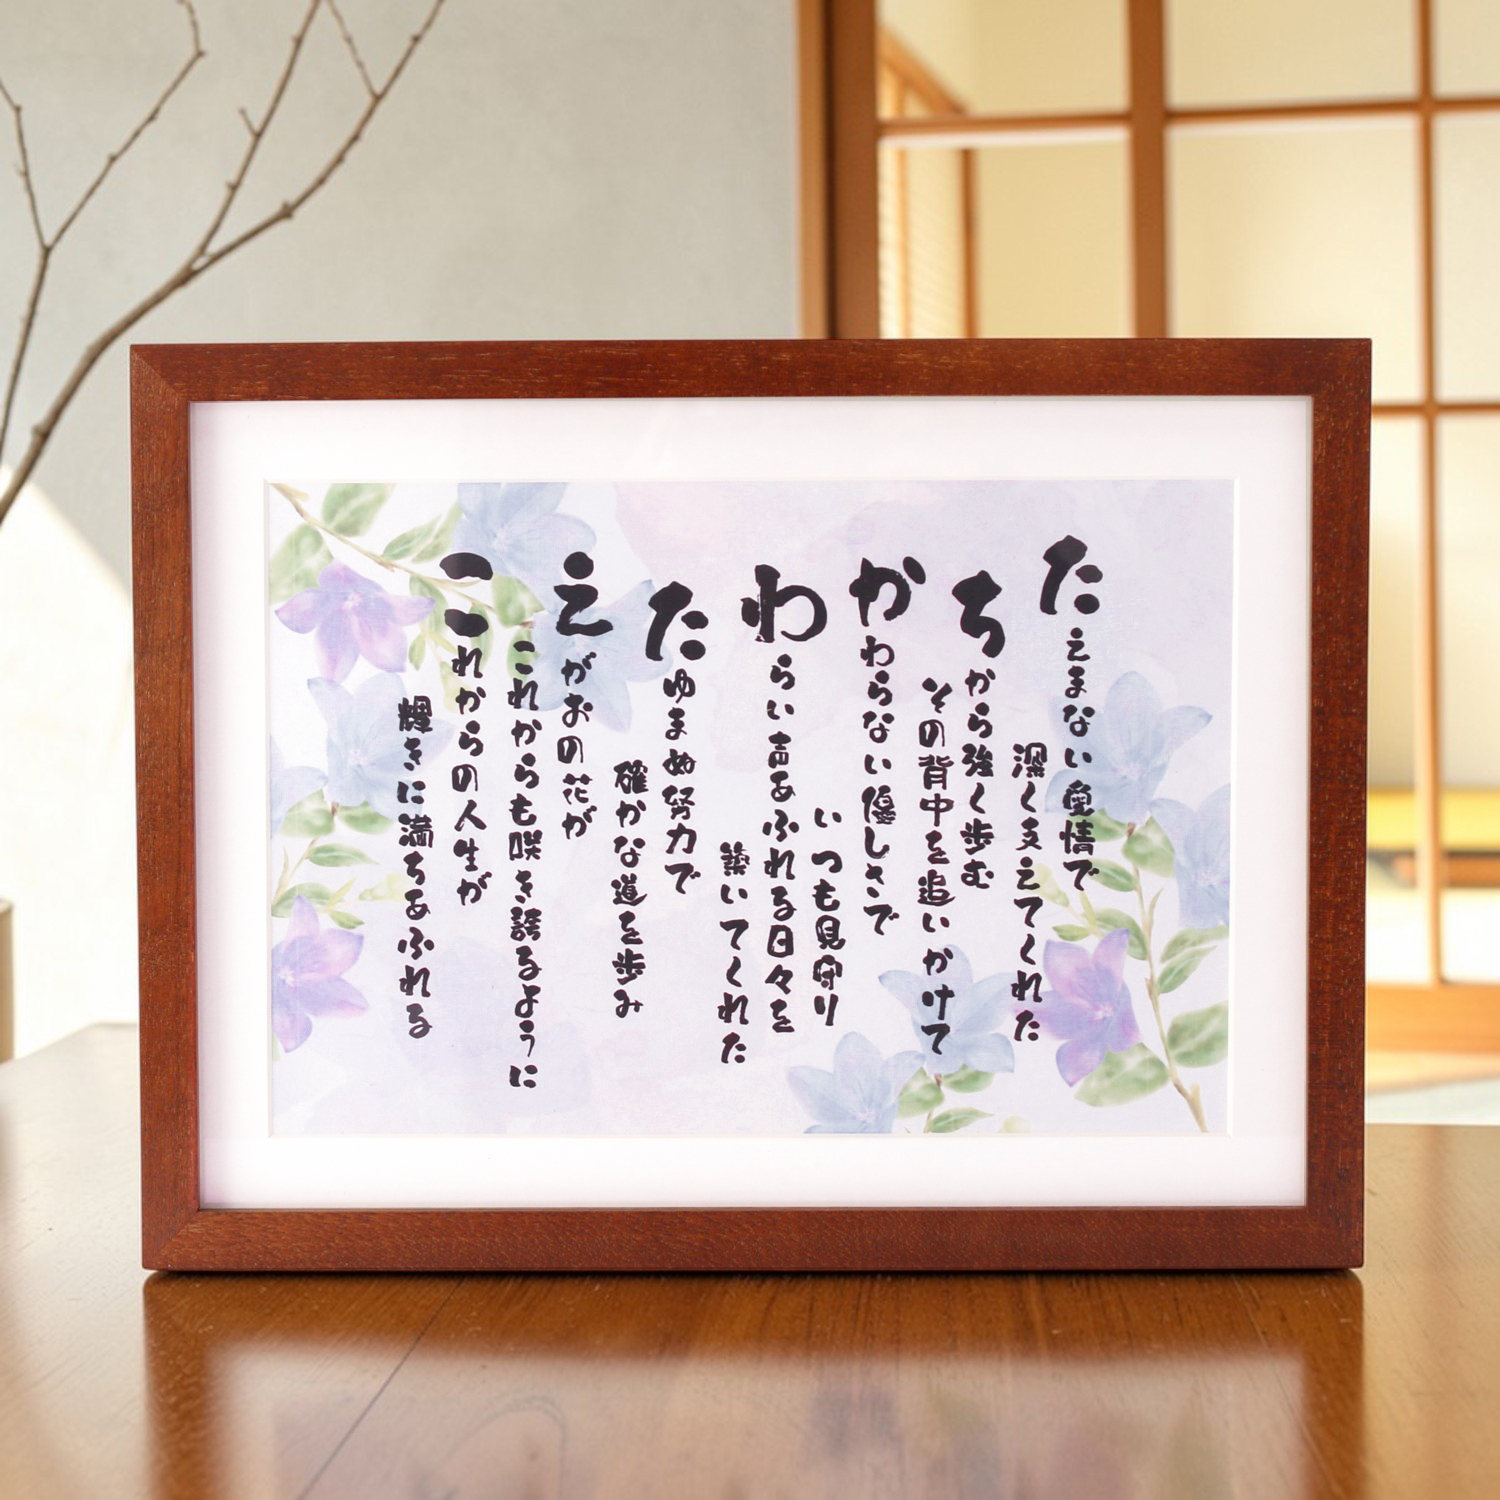 たえまない愛情で
深く支えてくれた
ちから強く歩む
その背中を追いかけて
かわらない優しさで
いつも見守り
わらい声あふれる日々を
築いてくれた
たゆまぬ努力で
確かな道を歩み
えがおの花が
これからも咲き誇るように
これからの人生が
輝きに満ちあふれる